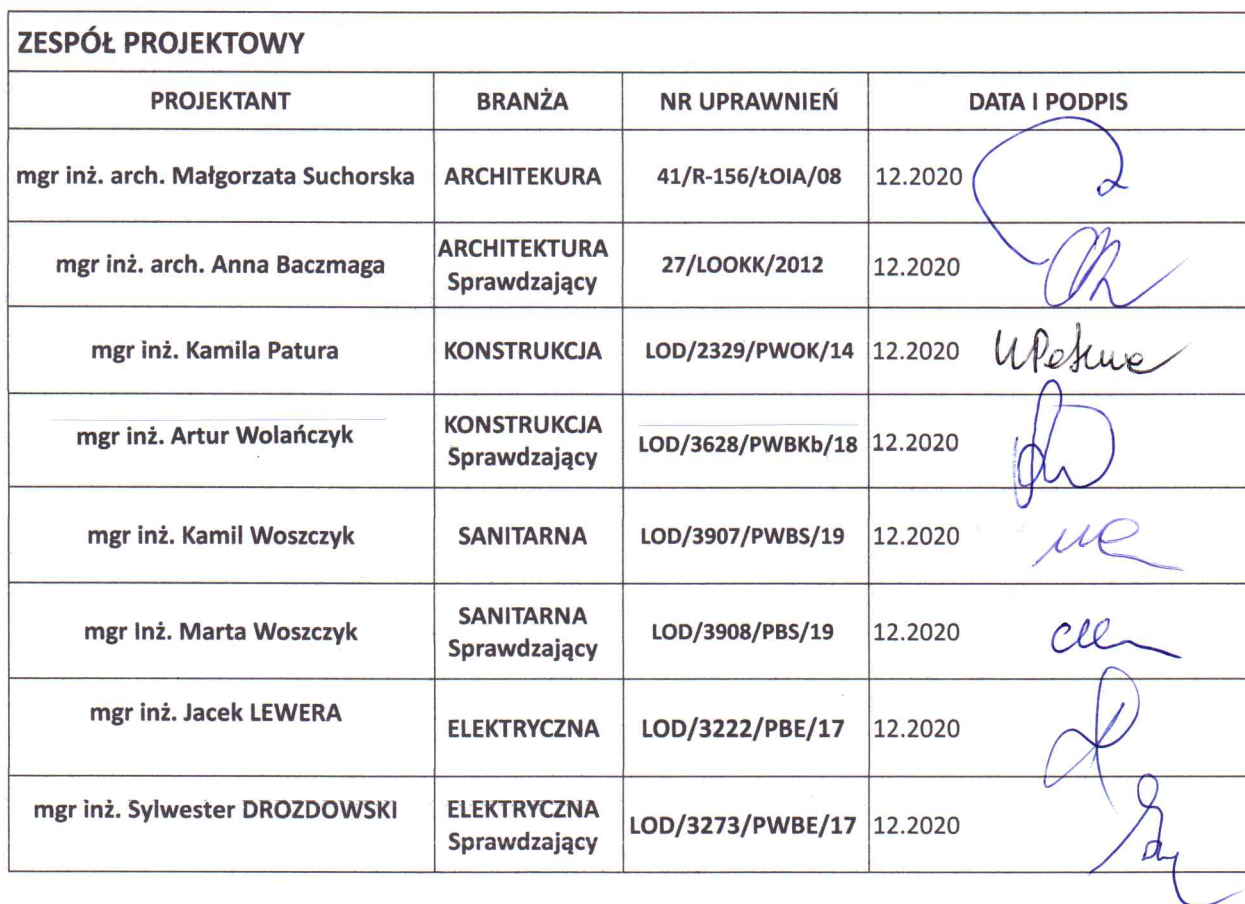 ZESPÓŁ PROJEKTOWY
PROJEKTANT BRANŻA NR UPRAWNIEŃ DATA I PODPIS
mgr inż. arch. Małgorzata Suchorska ARCHITEKURA 41/R-156/ŁOIA/08 12.2020
mgr inż. arch. Anna Baczmaga ARCHITEKTURA Sprawdzający 27/LOOKK/2012 12.2020
mgr inż. Kamila Patura KONSTRUKCJA LOD/2329/PWOK/14 12.2020
mgr inż. Artur Wolańczyk KONSTRUKCJA Sprawdzający LOD/3628/PWBKb/18 12.2020
mgr inż. Kamil Woszczyk SANITARNA LOD/3907/PWBS/19 12.2020
mgr Inż. Marta Woszczyk SANITARNA Sprawdzający LOD/3908/PBS/19 12.2020
mgr inż. Jacek LEWERA ELEKTRYCZNA LOD/3222/PBE/17 12.2020
mgr inż. Sylwester DROZDOWSKI ELEKTRYCZNA Sprawdzający LOD/3273/PWBE/17 12.2020